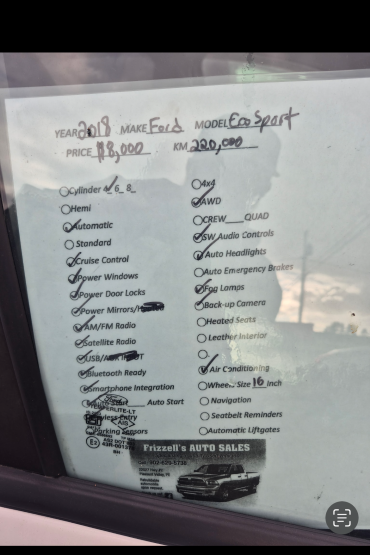 YEAR 2018 MAKE Ford MODEL EcoSport
PRICE $8,000 KM 220,000
Cylinder 4 6_ 8_
Hemi
Automatic
Standard
Cruise Control
Power Windows
Power Door Locks
Power Mirrors/
AM/FM Radio
Satellite Radio
USB/
Bluetooth Ready
Smartphone Integration
Auto Start
Keyless Entry
Parking Sensors
4x4
AWD
CREW____QUAD
SW Audio Controls
Auto Headlights
Auto Emergency Brakes
Fog Lamps
Back-up Camera
Heated Seats
Leather Interior
Air Conditioning
Wheel Size 16 Inch
Navigation
Seatbelt Reminders
Automatic Liftgates
Frizzell's AUTO SALES